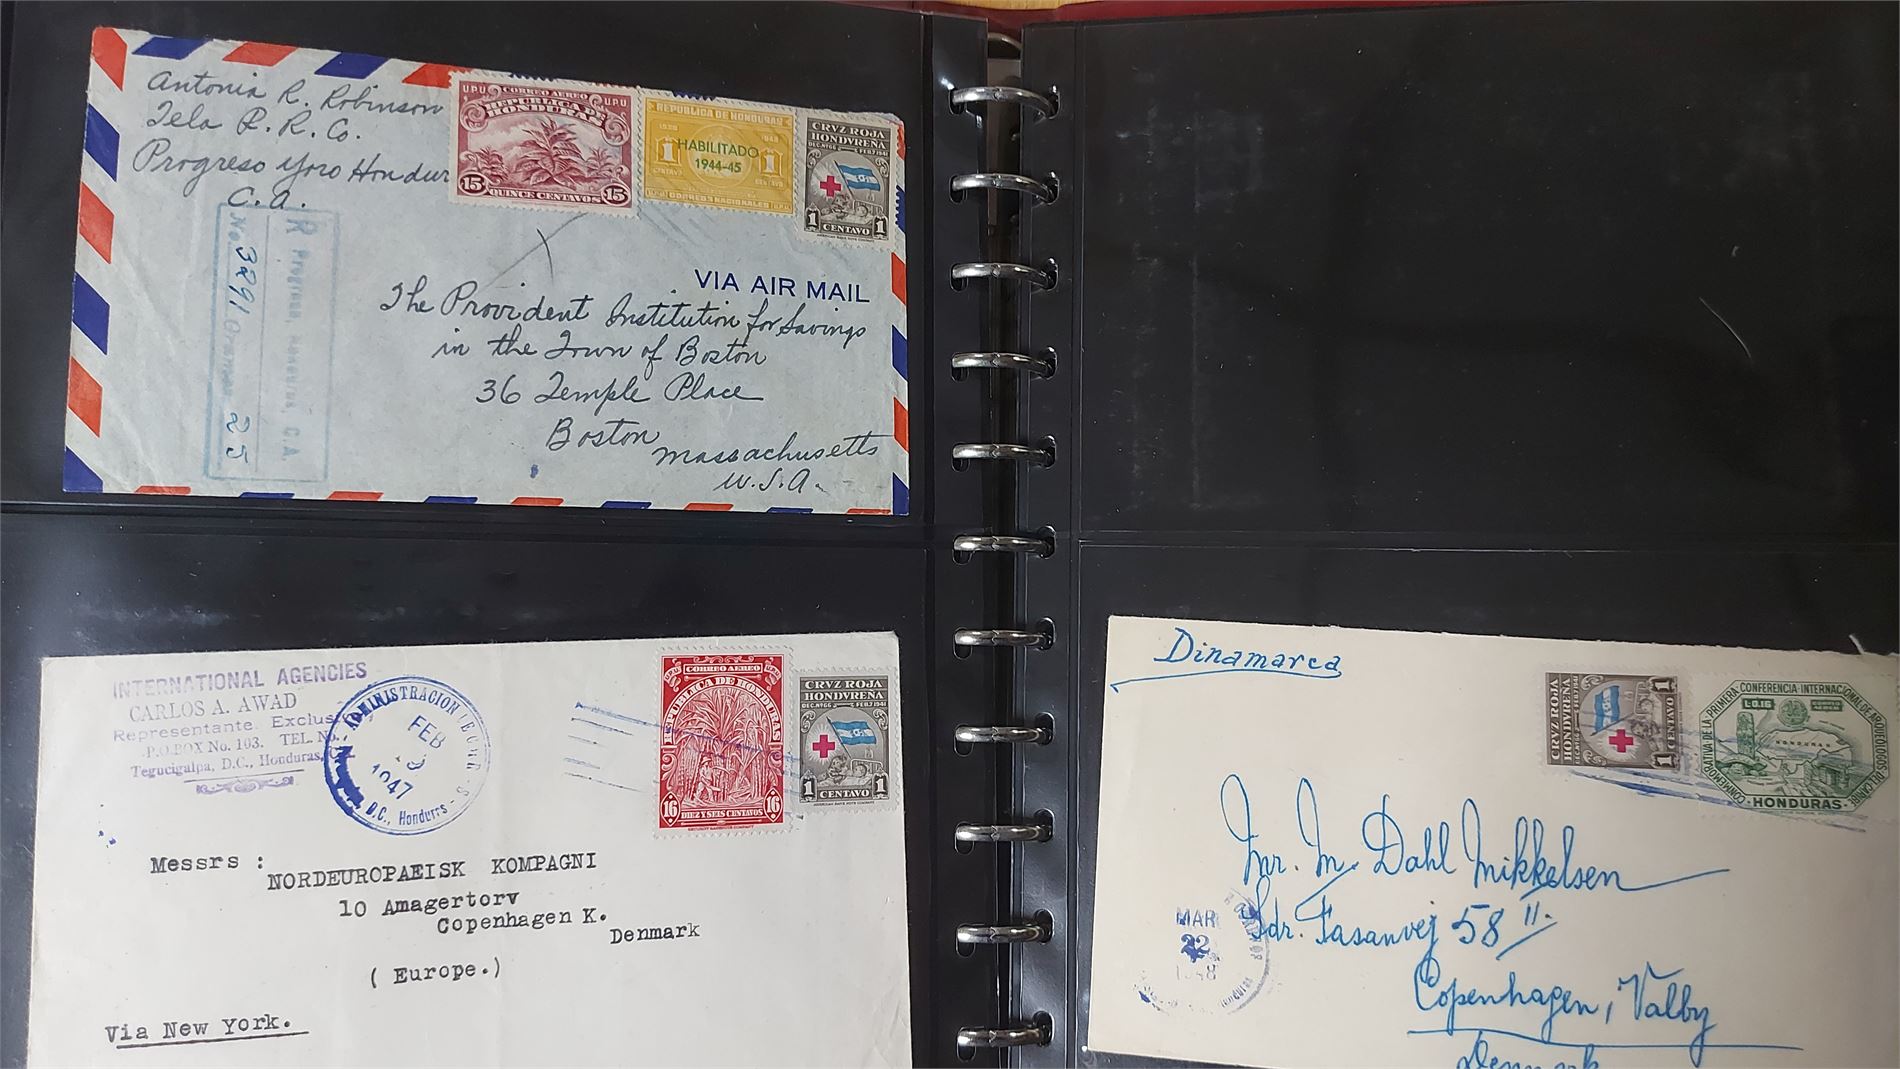 Antonia R. Robinson
Tela R. R. Co.
Progreso Yoro Hondur
C.A.
U.P.U. CORREO AEREO U.P.U.
REPUBLICA DE
HONDURAS
15 QUINCE CENTAVOS 15
REPUBLICA DE HONDURAS
HABILITADO
1 1
1944-45
CENTAVO CENTAVO
CORREOS NACIONALES
CRVZ ROJA
HONDVREÑA
DEC. Nº 66 FEB. 7 1941
1 CENTAVO 1
R Progreso, Honduras, C.A.
No. 3291 25
VIA AIR MAIL
The Provident Institution for Savings
in the Town of Boston
36 Temple Place
Boston
Massachusetts
U.S.A.
INTERNATIONAL AGENCIES
CARLOS A. AWAD
Representante Exclusi
P.O.BOX No. 103. TEL. No.
Tegucigalpa, D.C., Honduras, C.
ADMINISTRACION
FEB
1947
D.C., Honduras
CORREO AEREO
REPUBLICA DE HONDURAS
16 16
DIEZ Y SEIS CENTAVOS
CRVZ ROJA
HONDVREÑA
DEC. Nº 66 FEB. 7 1941
1 CENTAVO 1
Messrs :
NORDEUROPAEISK KOMPAGNI
10 Amagertorv
Copenhagen K.
Denmark
( Europe.)
Via New York.
Dinamarca
CRVZ ROJA
HONDVREÑA
1 CENTAVO 1
CONMEMORATIVA DE LA PRIMERA CONFERENCIA INTERNACIONAL DE ARQUEOLOGOS DEL CARIBE
L 0.16 CORREO AEREO
HONDURAS
Mr. M. Dahl Mikkelsen
Sdr. Fasanvej 58 II.
Copenhagen, Valby
Denmark
MAR
22